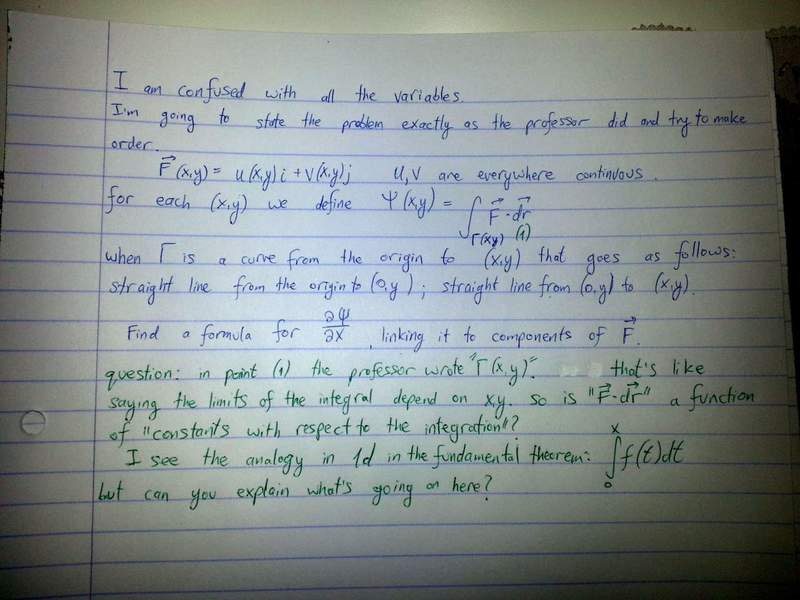 I am confused with all the variables.
I'm going to state the problem exactly as the professor did and try to make
order.
F⃗(x,y) = u(x,y)i + v(x,y)j u,v are everywhere continuous.
for each (x,y) we define Ψ(x,y) = ∫_{Γ(x,y)} F⃗·dr⃗
(1)
when Γ is a curve from the origin to (x,y) that goes as follows:
straight line from the origin to (0,y); straight line from (0,y) to (x,y).
Find a formula for ∂Ψ/∂x, linking it to components of F⃗.
question: in point (1) the professor wrote "Γ(x,y)". that's like
saying the limits of the integral depend on x,y. so is "F⃗·dr⃗" a function
of "constants with respect to the integration"?
I see the analogy in 1d in the fundamental theorem: ∫₀ˣ f(t)dt
but can you explain what's going on here?